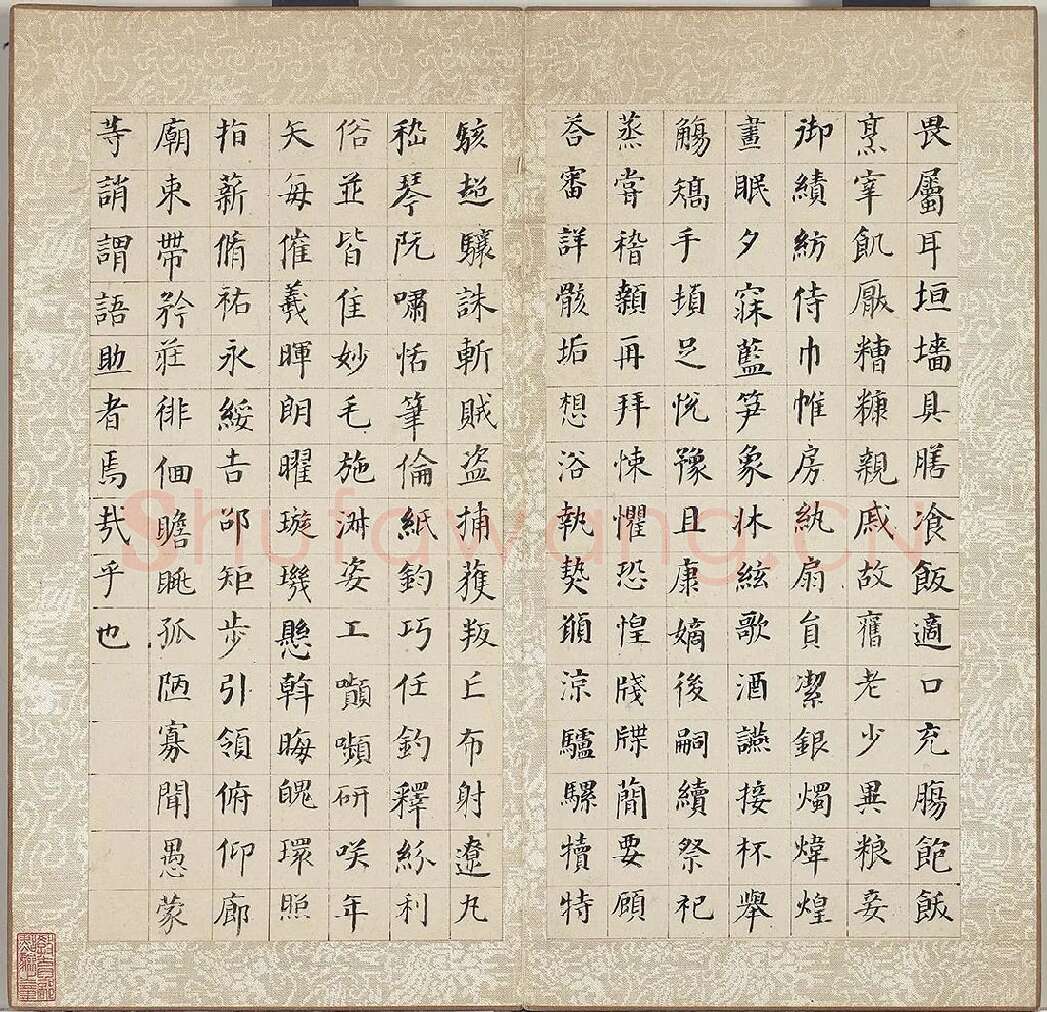 畏屬耳垣墻具膳飡飯適口充膓飽飫
烹宰飢厭糟糠親戚故舊老少異粮妾
御績紡侍巾帷房紈扇員潔銀燭煒煌
晝眠夕寐藍笋象牀絃歌酒讌接杯舉
觴矯手頓足悅豫且康嫡後嗣續祭祀
蒸嘗稽顙再拜悚懼恐惶牋牒簡要顧
荅審詳骸垢想浴執熱願涼驢騾犢特
駭超驤誅斬賊盜捕獲叛亡布射遼丸
嵇琴阮嘯恬筆倫紙鈞巧任釣釋紛利
俗並皆佳妙毛施淑姿工顰嚬研咲年
矢每催羲暉朗曜璇璣懸斡晦魄環照
指薪脩祐永綏吉邵矩步引領俯仰廊
廟束帶矜莊徘徊瞻眺孤陋寡聞愚蒙
等誚謂語助者焉哉乎也
Shufawang.cn